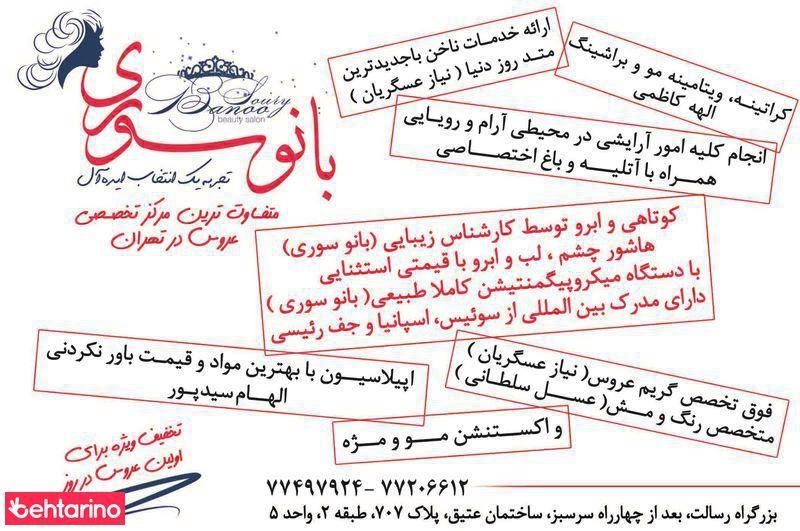 ارائه خدمات ناخن باجدیدترین
متد روز دنیا ( نیاز عسگریان )
کراتینه، ویتامینه مو و براشینگ
الهه کاظمی
Soury
Banoo
beauty salon
بانو سوری
تجربه یک انتخاب ایده آل
متفاوت ترین مرکز تخصصی
عروس در تهران
انجام کلیه امور آرایشی در محیطی آرام و رویایی
همراه با آتلیه و باغ اختصاصی
کوتاهی و ابرو توسط کارشناس زیبایی (بانو سوری)
هاشور چشم ، لب و ابرو با قیمتی استثنایی
با دستگاه میکروپیگمنتیشن کاملا طبیعی( بانو سوری )
دارای مدرک بین المللی از سوئیس، اسپانیا و جف رئیسی
اپیلاسیون با بهترین مواد و قیمت باور نکردنی
الهام سیدپور
فوق تخصص گریم عروس( نیاز عسگریان )
متخصص رنگ و مش( عسل سلطانی )
و اکستنشن مو و مژه
تخفیف ویژه برای
اولین عروس در روز
۷۷۴۹۷۹۲۴ - ۷۷۲۰۶۶۱۲
بزرگراه رسالت، بعد از چهارراه سرسبز، ساختمان عتیق، پلاک ۷۰۷، طبقه ۲، واحد ۵
behtarino